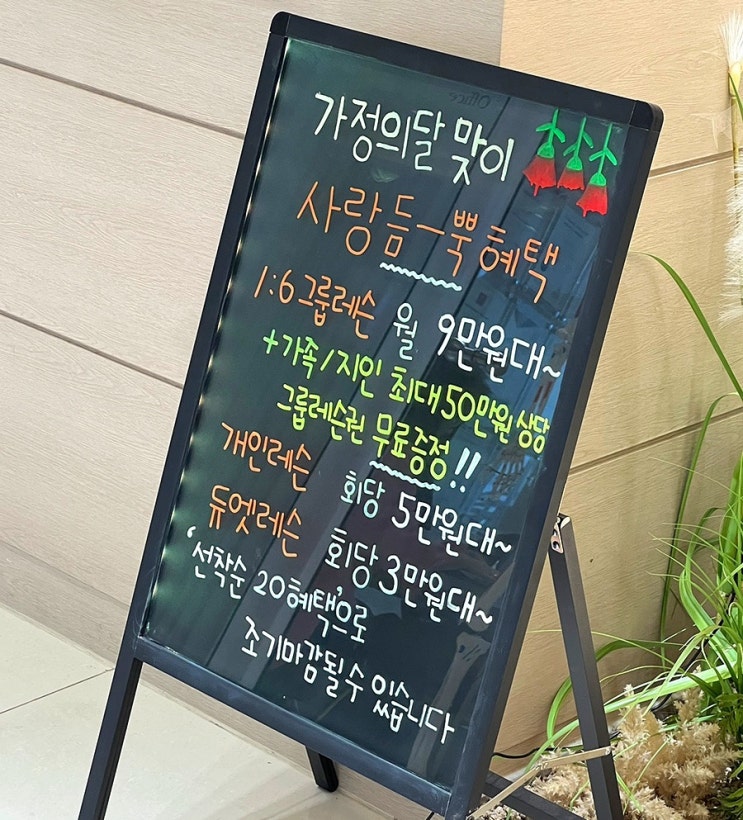 가정의달 맞이
사랑 듬-뿍 혜택
1:6 그룹레슨 월 9만원대~
+가족/지인 최대 50만원 상당
그룹레슨권 무료증정!!
개인레슨 회당 5만원대~
듀엣레슨 회당 3만원대~
'선착순 20혜택'으로
조기마감될 수 있습니다